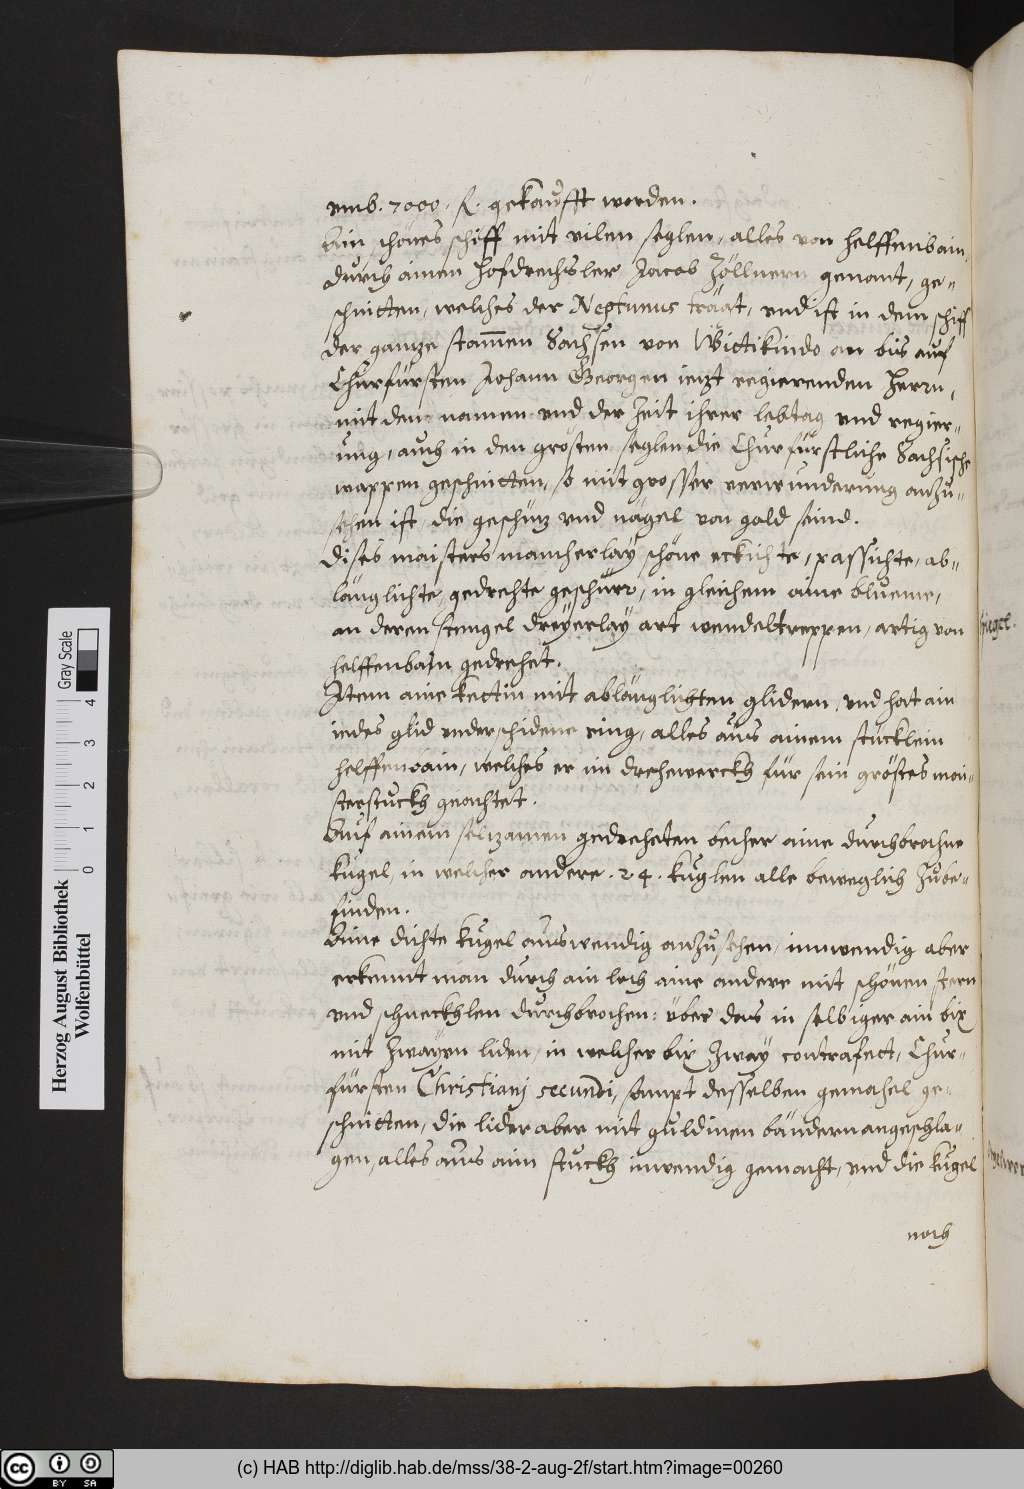 umb. 7000. fl. gekaufft worden.
Ain schönes schiff mit vilen seglen, alles von helffenbain,
durch ainen Hofdrechsler Jacob Zöllnern genant, ge-
schnitten, welches der Neptunus trägt, und ist in dem schiff
der gantze stammen Sachsen von Wittikindo an bis auf
Churfürsten Johann Georgen ietzt regierenden Herrn,
mit dem namen und der Zeit ihrer lebtag und regier-
ung, auch in den grösten seglen die Churfürstliche Sächsische
wappen geschnitten, so mit grosser verwunderung anzu-
sehen ist, die geschütz und nägel von gold seind.
Dises maisters mancherlay schöne eckichte, passichte, ab-
länglichte, gedrehte geschürr, in gleichem aine blueme,
an deren stengel dreyerlay art wendeltreppen, artig von
helffenbain gedrehet.
Item aine kettin mit ablänglichten glidern, und hat ain
iedes glid underschidene ring, alles aus ainem stücklein
helffenbain, welches er im drehewerckh für sein gröstes mai-
sterstuckh geachtet.
Auf ainem seltzamen gedreheten becher aine durchbrochne
kugel, in welcher andere .24. kuglen alle beweglich zube-
finden.
Aine dichte kugel auswendig anzusehen, innwendig aber
erkennt man durch ain loch aine andere mit schönen stern
und schneckhlen durchbrochen: über das in selbiger ain bix
mit zwayen liden, in welcher bix zway contrafect, Chur-
fürsten Christianj secundi, sampt desselben gemahel ge-
schnitten, die lider aber mit guldinen bändern angeschla-
gen, alles aus aim stuckh inwendig gemacht, und die kugel
noch
Herzog August Bibliothek
Wolfenbüttel
Gray Scale
0 1 2 3 4
(c) HAB http://diglib.hab.de/mss/38-2-aug-2f/start.htm?image=00260
cc BY SA